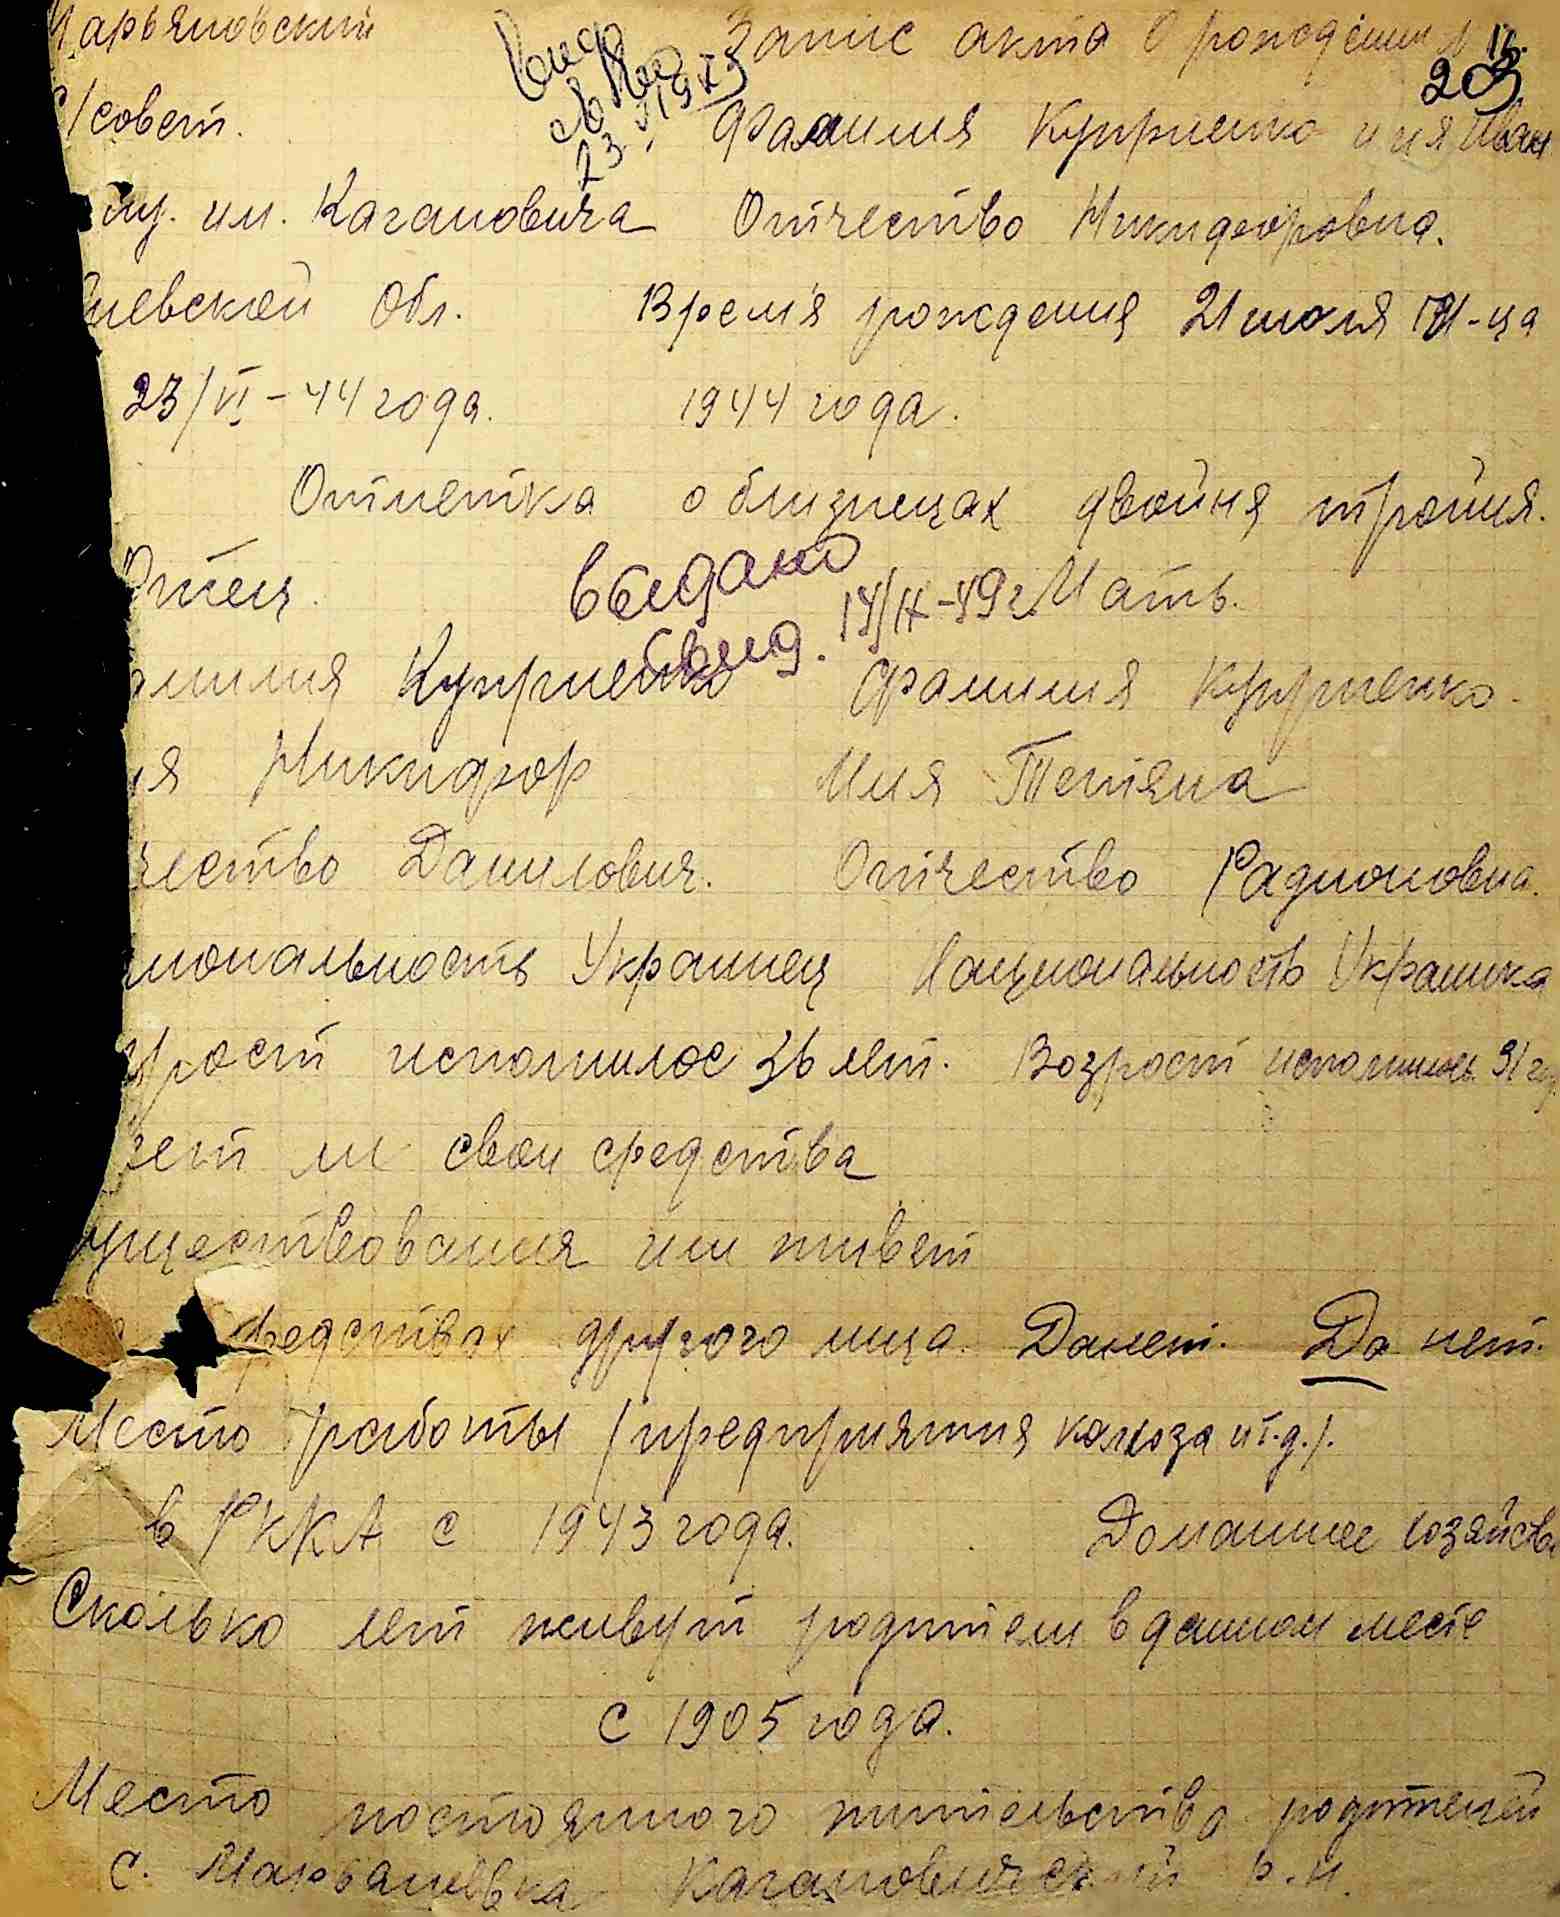 Марьяновский Запис акта о рождении № 11.
203
с/совет. Фамилия Куприенко имя Иван
им. Кагановича Отчество Никифоровна.
иевской Обл. Время рождения 21 июля м-ца
23/VI-44 года. 1944 года.
Отметка о близнецах двойня тройня.
Отец. выдано 14/IX-49г Мать.
амилия Куприенко Фамилия Куприенко.
мя Никифор Имя Тетяна
чество Данилович. Отчество Радионовна.
иональность Украинец Национальность Украинка
зрост исполнилос 36 лет. Возрост исполнилось 31 год
еет ли свои средства
уществования или живет
средствах другого лица. Да нет. Да нет.
Место работы (предприятия колхоза и т.д.).
в РККА с 1943 года. Домашнее хозяйство
Сколько лет живут родители в данном месте
с 1905 года.
Место постоянного жительства родителей
с. Марьяновка Кагановичский р-н.